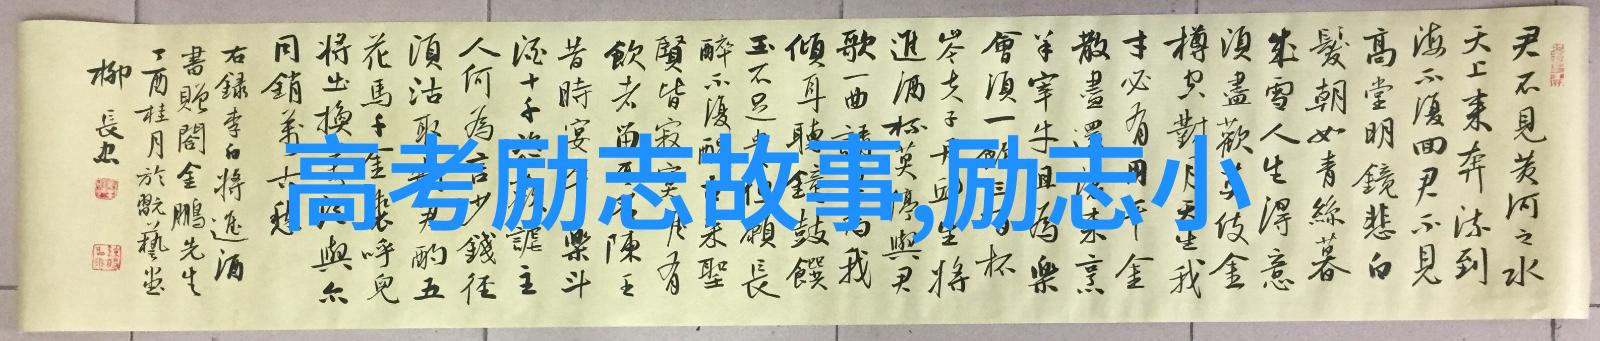 君不見黃河之水
天上來奔流到
海不復回君不見
高堂明鏡悲白
髮朝如青絲暮
成雪人生得意
須盡歡莫使金
樽空對月天生我
才必有用千金
散盡還復來烹
羊宰牛且為樂
會須一飲三百杯
岑夫子丹丘生將
進酒杯莫停與君
歌一曲請君為我
傾耳聽鐘鼓饌
玉不足貴但願長
醉不復醒來聖
賢皆寂寞有
飲者留其名陳王
昔時宴平樂斗
酒十千恣謔主
人何為言少錢徑
須沽取君酌五
花馬千金裘呼兒
將出換美酒與尒
同銷萬古愁
右錄李白將進酒
書贈閤金鵬先生
丁酉桂月於翫藝堂
柳長忠
高考励志故事,励志小